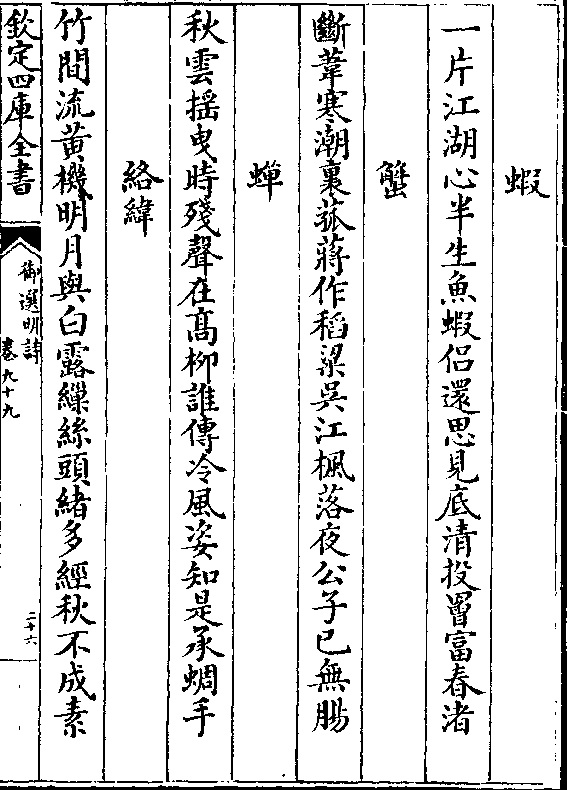 蝦
一片江湖心半生魚蝦侣還思見底清投罾富春渚
蟹
斷葦寒潮裏菰蔣作稻粱吳江楓落夜公子已無腸
蟬
秋雲揺曳時殘聲在髙柳誰傳冷風姿知是承蜩手
絡緯
竹間流黄機明月與白露繅絲頭緒多經秋不成素
欽定四庫全書
御選明詩
卷九十九
二十六